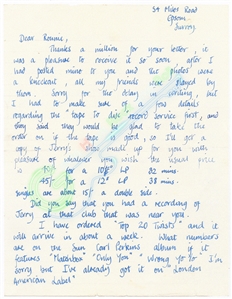 54 Miles Road
Epsom.
Surrey
Dear Ronnie,
Thanks a million for your letter, it
was a pleasure to receive it so soon, after I
had posted mine to you and the photos were
a knockout, all my friends were flipped by
them. Sorry for the delay in writing, but
I had to make sure of a few details
regarding the "tape to disc" record service first, and
they said they would be glad to take the
order on if the tape is good, so I'll get a
copy of Jerry's show made up for you with
pleasure of whatever you wish the usual price
is R/- for a 10" LP 32 mins.
45/- for a 12" LP 38 mins.
singles are about 15/- a double side.
Did you say that you had a recording of
Jerry at that club that was near you.
I have ordered "Top 20 Twists" and it
will arrive in about a week. What numbers
are on the Sun Carl Perkins album if it
features "Matchbox" "Only You" + "Wrong Yo Yo" I'm
sorry but I've already got it on "London
American Label"